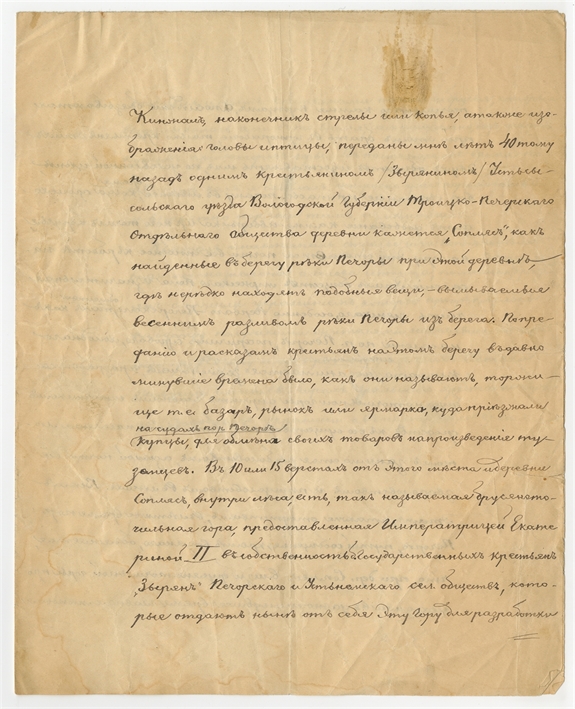 Кинжалъ, наконечникъ стрелы или копья, а также изо-
браженія головы и птицы, переданы мнѣ лѣтъ 40 тому
назадъ однимъ крестьяниномъ /Зыряниномъ/ Устьсы-
сольскаго уѣзда Вологодской Губерніи Троицко-Печорскаго
Отдѣльнаго Общества деревни кажется „Соплясъ", какъ
найденные въ берегу рѣки Печоры при этой деревнѣ,—
гдѣ нерѣдко находятъ подобныя вещи,— вымываемыя
весеннимъ разливомъ рѣки Печоры изъ берега. По пре-
данію и расказамъ крестьянъ на этомъ берегу въ давно
минувшіе времена было, какъ они называютъ, торжи-
ще т.е. базаръ, рынокъ или ярмарка, куда пріѣзжали
на судахъ по р. Печорѣ
Купцы, для обмѣна своихъ товаровъ на произведенія ту-
земцевъ. Въ 10 или 15 верстахъ отъ этого мѣста и деревни
Соплясъ, внутри лѣса, есть, такъ называемая брусяното-
чильная гора, предоставленная Императрицей Екате-
риной II въ собственность Государственныхъ крестьянъ
„Зырянъ" Печорскаго и Устьнемскаго сел. обществъ, кото-
рые отдаютъ нынѣ отъ себя эту Гору для разработки